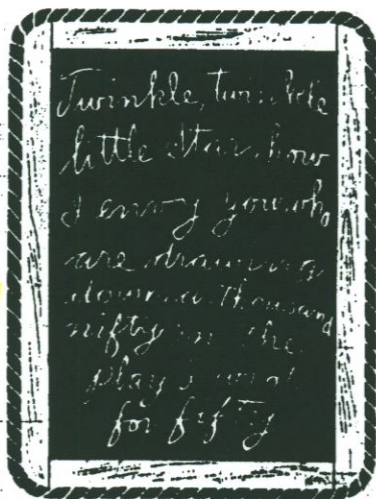 Twinkle, twinkle
little star, how
I envy you who
are drawing
down a thousand
nifty in the
play
for fifty